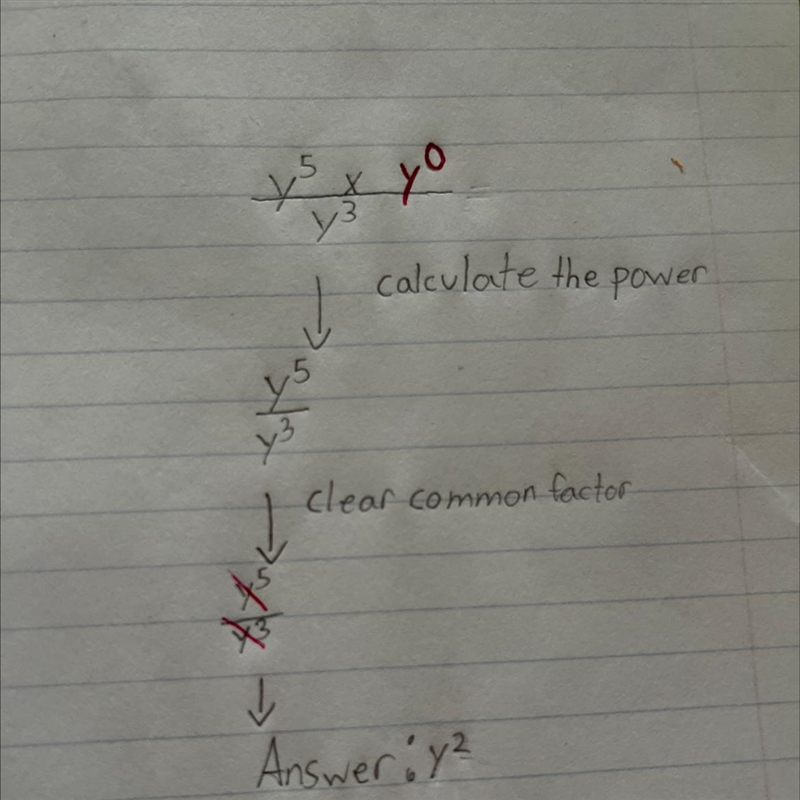 y⁵ x y⁰ =
y³
calculate the power
y⁵
y³
clear common factor
y⁵
y³
Answer: y²